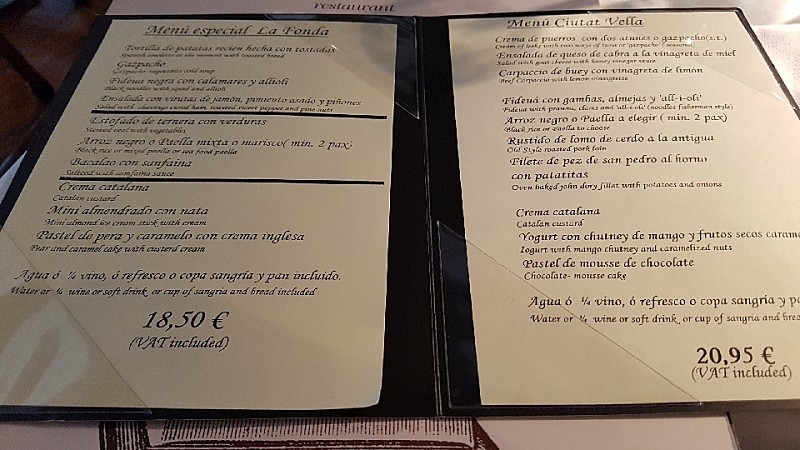 restaurant
Menú especial La Fonda
Tortilla de patatas recien hecha con tostadas
Spanish omelette at the moment with toasted bread
Gazpacho
Gazpacho vegetables cold soup
Fideua negra con calamares y allioli
Black noodles with squid and allioli
Ensalada con virutas de jamón, pimiento asado y piñones
Salad with shavings cured ham, roasted pepper and pine nuts
Estofado de ternera con verduras
Stewed veal with vegetables
Arroz negro o Paella mixta o marisco( min. 2 pax)
Black rice or mixed paella or sea food paella
Bacalao con sanfaina
Saltcod with samfaina sauce
Crema catalana
Catalan custard
Mini almendrado con nata
Mini almond ice cream stick with cream
Pastel de pera y caramelo con crema inglesa
Pear and caramel cake with custerd cream
Agua ó ¼ vino, ó refresco o copa sangría y pan incluido.
Water or ¼ wine or soft drink, or cup of sangria and bread included
18,50 €
(VAT included)
Menú Ciutat Vella
Crema de puerros con dos atunes o gazpacho(s.t.)
Cream of leeks with two ways of tuna or "gazpacho" ( seasonal)
Ensalada de queso de cabra a la vinagreta de miel
Salad with goat cheese with honey vinegar sauce
Carpaccio de buey con vinagreta de limón
Beef Carpaccio with lemon vinaigrette
Fideuá con gambas, almejas y 'all-i-oli'
Fideuá with prawns, clams and 'all-i-oli' (noodles fisherman style)
Arroz negro o Paella a elegir ( min. 2 pax)
Black rice or Paella to choose
Rustido de lomo de cerdo a la antigua
Old Style roasted pork loin
Filete de pez de san pedro al horno
con patatitas
Oven baked john dory fillet with potatoes and onions
Crema catalana
Catalan custard
Yogurt con chutney de mango y frutos secos carame
Iogurt with mango chutney and caramelized nuts
Pastel de mousse de chocolate
Chocolate- mousse cake
Agua ó ¼ vino, ó refresco o copa sangría y pa
Water or ¼ wine or soft drink, or cup of sangria and brea
20,95 €
(VAT included)